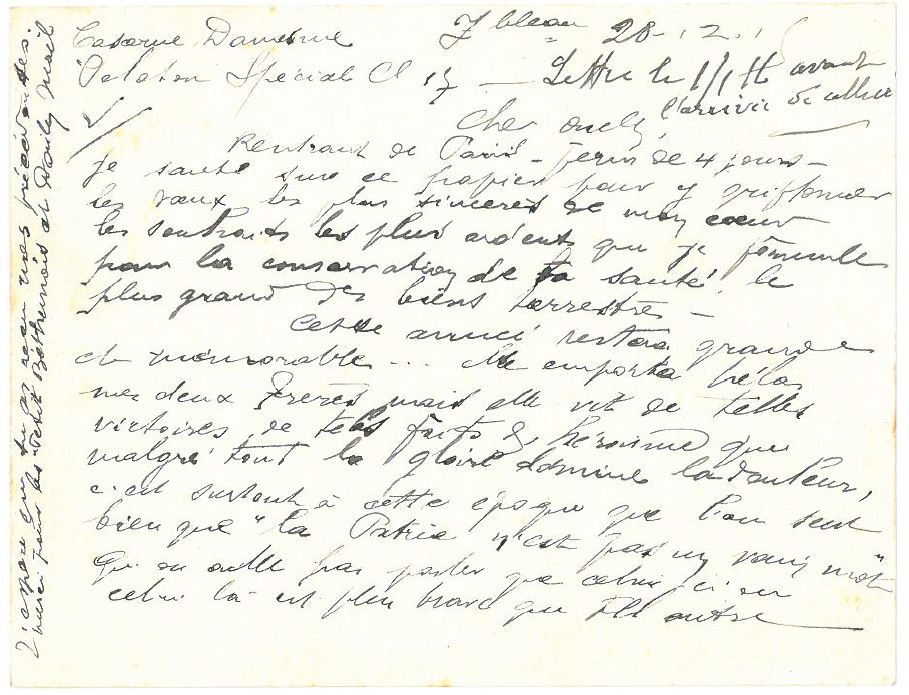 Caserne Damesme F bleau 28-12-1
Peloton Spécial Cl 17 — Lettre le 1/1/16 avant
l'arrivée de celle
Cher oncle,
Rentrant de Paris - perm de 4 jours -
je saute sur ce papier pour y griffonner
les vœux les plus sincères de mon cœur
les souhaits les plus ardents que je formule
pour la conservation de ta santé, le
plus grand des biens terrestres -
Cette année restera grande
et mémorable ... Elle emporta hélas
mes deux Frères mais elle vit de telles
victoires, de tels faits d'héroïsme que
malgré tout la gloire domine la douleur,
c'est surtout à cette époque que l'on sent
bien que "la Patrie n'est pas un vain mot"
Qu'on aille pas parler que celui ci ou
celui là est plus brave que tel autre
J'espère que tu as reçu mes précédentes.
Merci pour les Petit Béthunois et Daily Mail